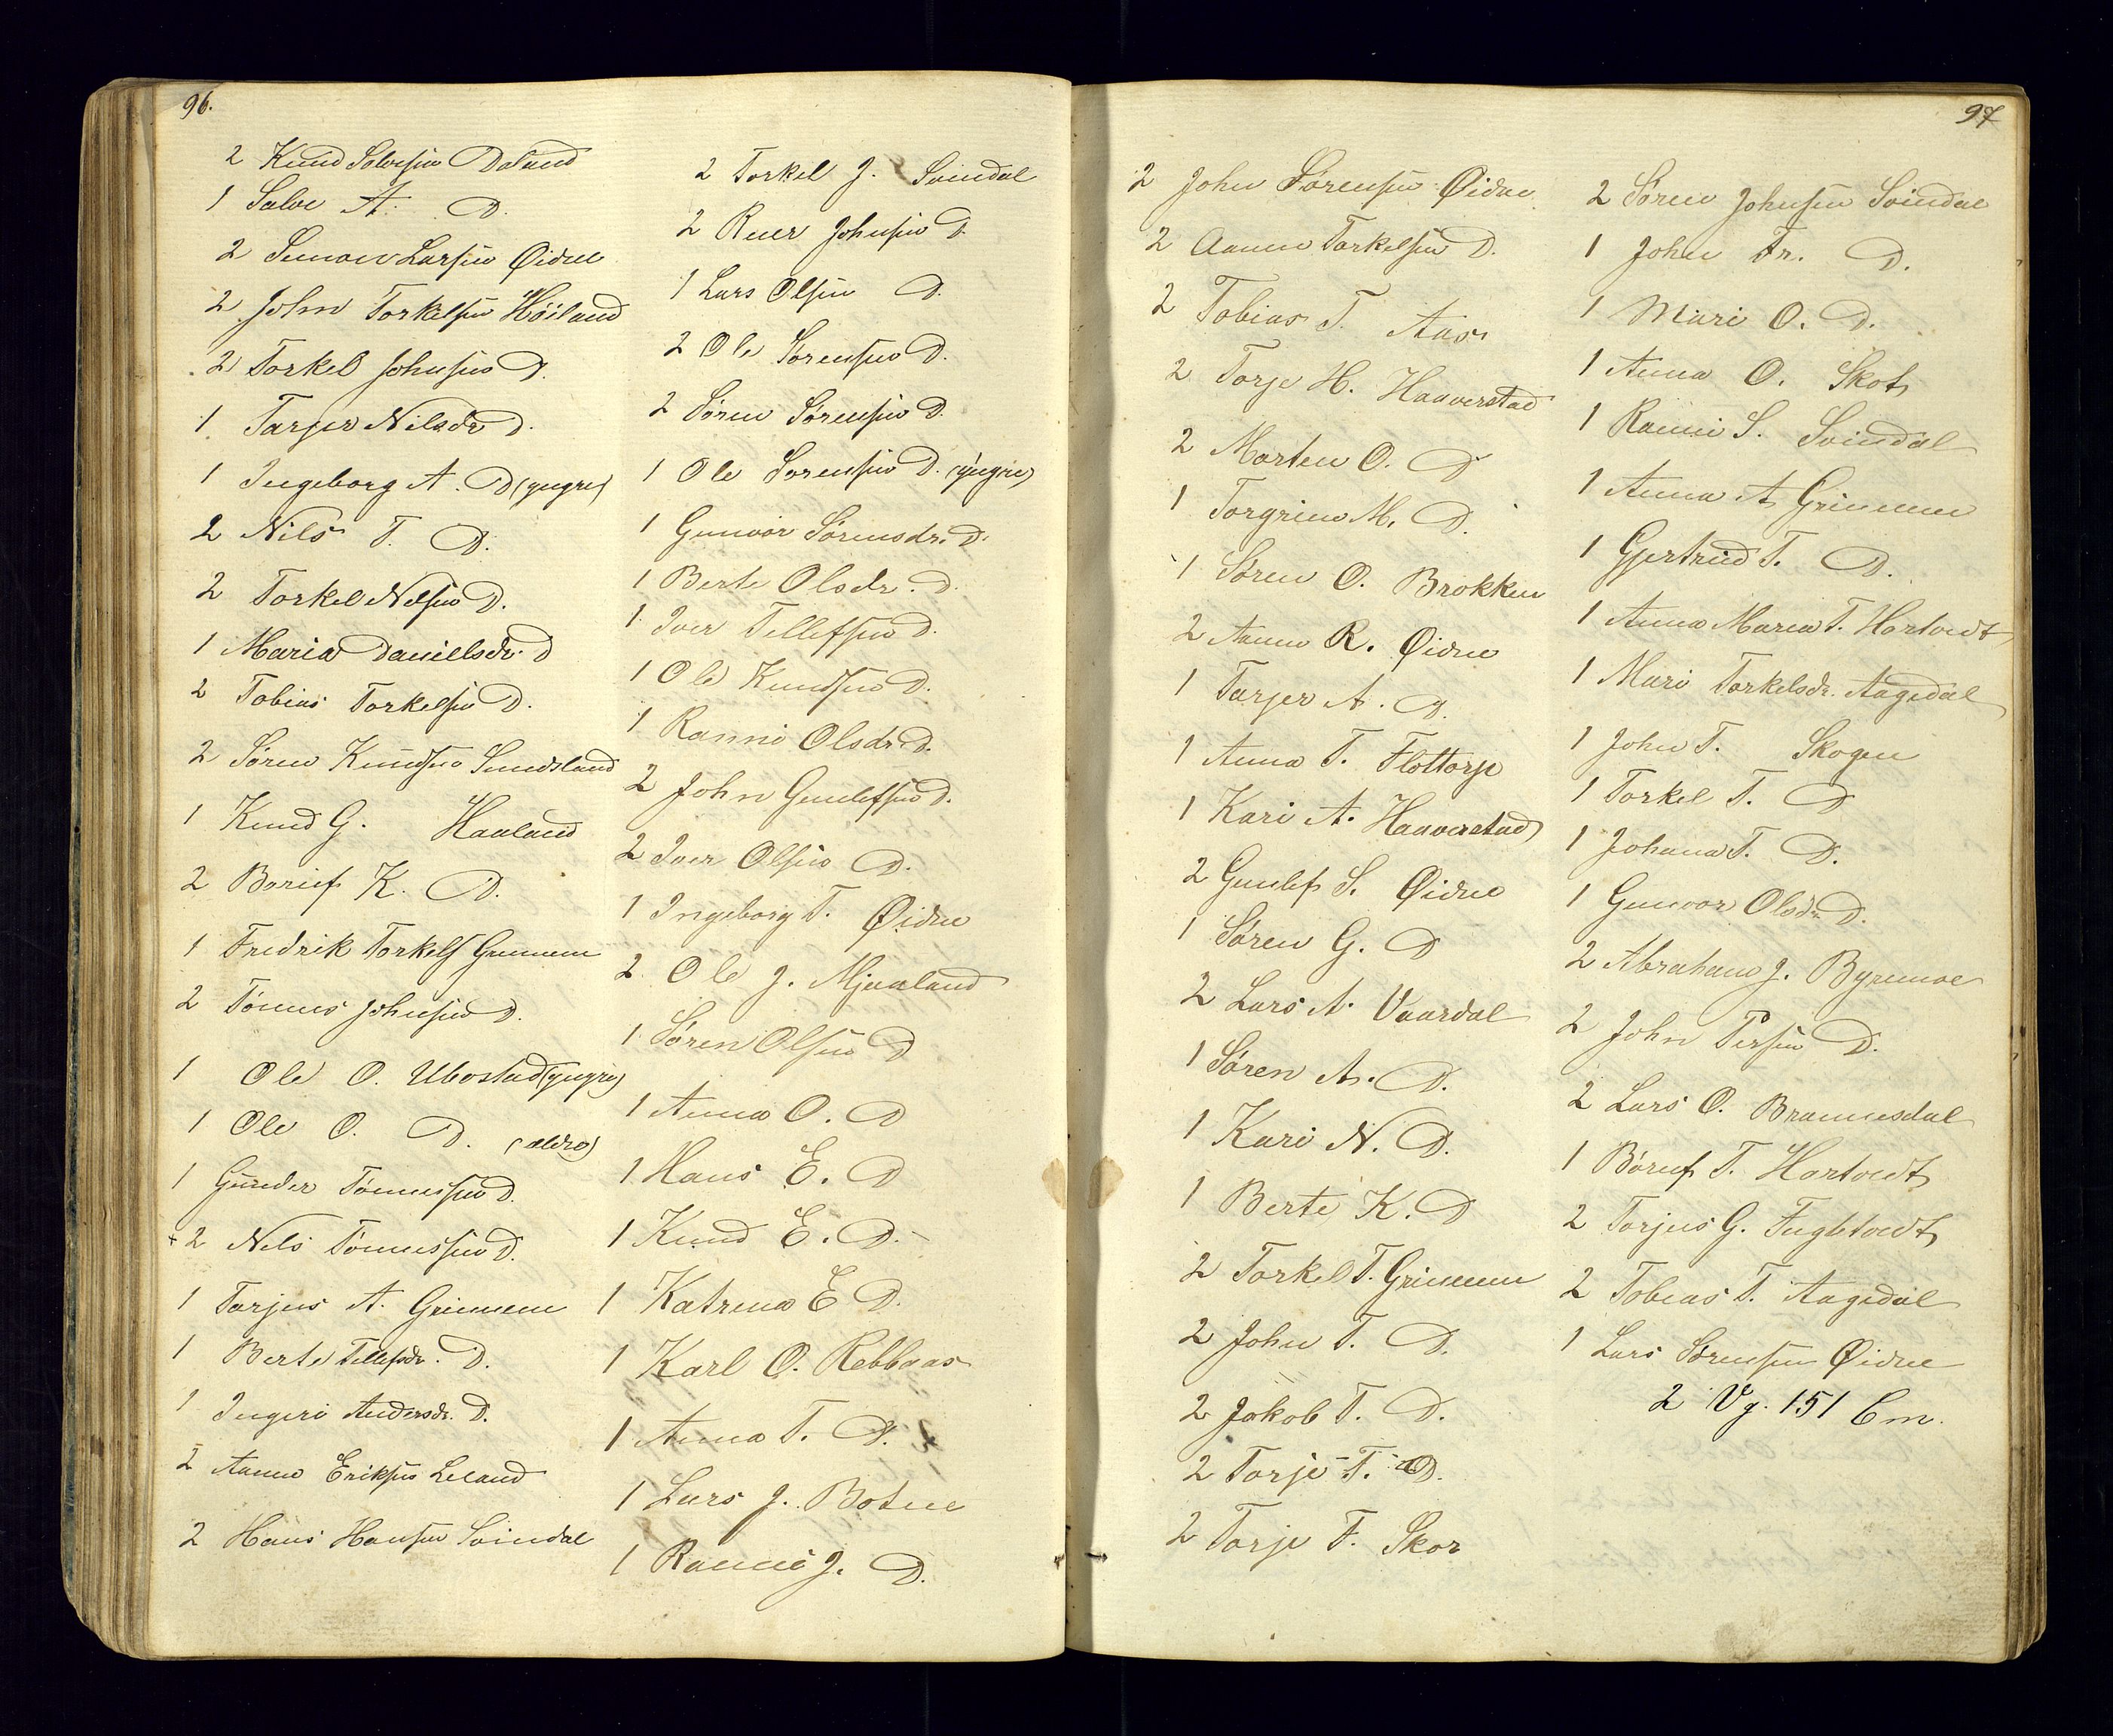 96.
2 Knud Salvesen Daland
1 Salve A. D.
2 Simon Larsen Øidne
2 John Torkelsen Høiland
2 Torkel Johnsen D.
1 Tarjer Nilsdr D.
1 Ingeborg A. D (yngre)
2 Nils T. D.
2 Torkel Nelsen D.
1 Maria Danielsdr. D
2 Tobias Torkelsen D.
2 Søren Knudsen Sundsland
1 Knud G. Haaland
2 Boruf K. D.
1 Fredrik Torkels Grimnem
2 Tønnes Johnsen D.
1 Ole O. Ubostad (yngre)
1 Ole O. D. (ældre)
1 Gunder Tønnessen D.
2 Nels Tønnessen D.
1 Tarjus A. Grimnem
1 Berte Tellefsdr. D.
1 Ingeri Andersdr. D.
2 Aanen Eriksen Leland
2 Hans Hansen Svindal
2 Torkel J. Svindal
2 Reier Johnsen D.
1 Lars Olsen D.
2 Ole Sørensen D.
2 Søren Sørensen D.
1 Ole Sørensen D. (yngre)
1 Gunvor Sørensdr. D.
1 Berte Olsdr. D.
1 Iver Tellefsen D.
1 Ole Knudsen D.
1 Ranni Olsdr. D.
2 John Gunlefsen D.
2 Iver Olsen D.
1 Ingeborg T. Øidne
2 Ole J. Mjaaland
1 Søren Olsen D
1 Anna O. D
1 Hans E. D
1 Knud E. D.
1 Katrina E D.
1 Karl O. Rebbaas
1 Anna T. D.
1 Lars J. Botne
1 Ranni J. D.
97
2 John Sørensen Øidne
2 Aanen Torkelsen D.
2 Tobias T. Aas
2 Torje H. Haaverstad
2 Morten O. D
1 Torgrim M. D.
1 Søren O. Brokken
2 Aanen R. Øidne
1 Tarjer A. D.
1 Anna T. Flottorp
1 Kari A. Haaverstad
2 Gunlef S. Øidne
1 Søren G. D
2 Lars A. Vaardal
1 Søren A. D.
1 Kari N. D.
1 Berte K. D
2 Torkel T. Grimnem
2 John T. D.
2 Jakob T. D.
2 Torje T. D.
2 Torje F. Skor
2 Søren Johnsen Svindal
1 John Fr. D.
1 Mari O. D.
1 Anna O. Skot
1 Ranni S. Svindal
1 Anna A Grimnem
1 Gjertrud T. D.
1 Anna Maria T. Hortvedt
1 Mari Torkelsdr. Aagedal
1 John T. Skogen
1 Torkel T. D
1 Johana T. D.
1 Gunvor Olsdr. D.
2 Abraham J. Byremoe
2 John Persen D.
2 Lars O. Brannesdal
1 Boruf T. Hortvedt
2 Torjus G. Fuglevedt
2 Tobias T. Aagedal
1 Lars Sørensen Øidne
2 Vg. 151 Cm.